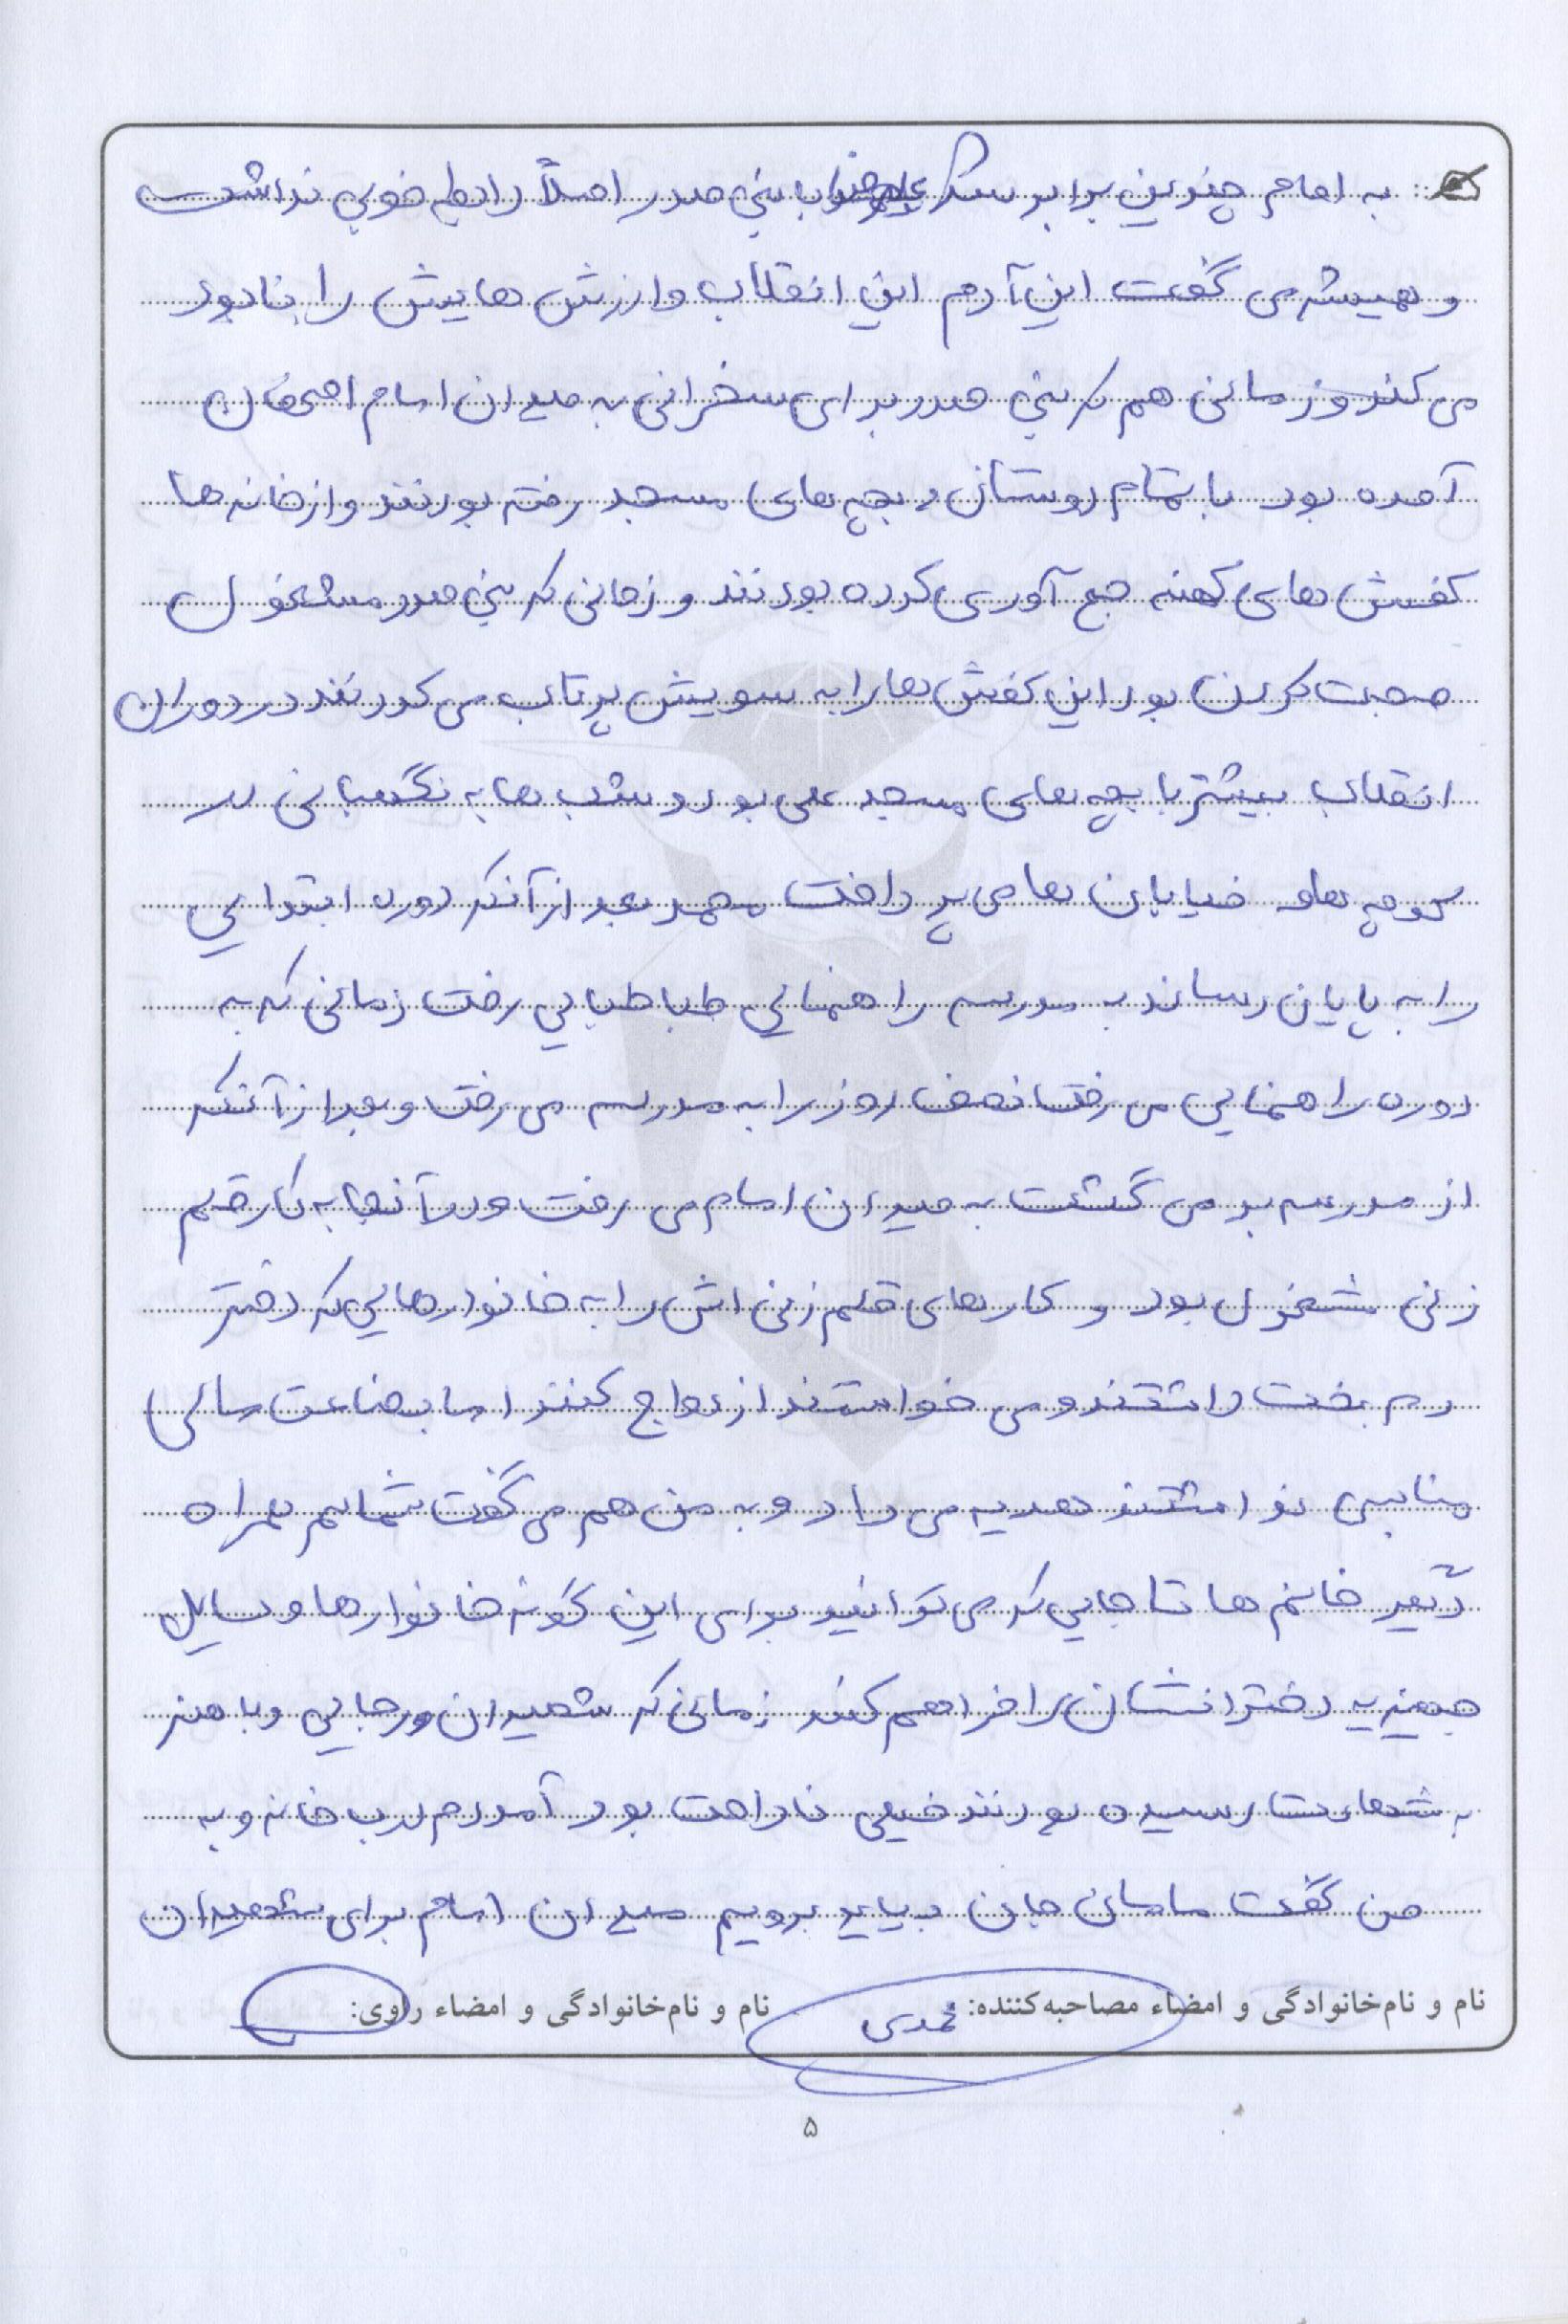 به امام چندین برابر شد بنی صدر اصلاً رابطه خوبی نداشت
و همیشه می گفت این آدم این انقلاب و ارزش هایش را نابود
می کند و زمانی هم که بنی صدر برای سخنرانی به میدان امام اصفهان
آمده بود با تمام دوستان و بچه های مسجد رفته بودند و از خانه ها
کفش های کهنه جمع آوری کرده بودند و زمانی که بنی صدر مشغول
صحبت کردن بود این کفش ها را به سویش پرتاب می کردند در دوران
انقلاب بیشتر با بچه های مسجد علی بود و شب ها به نگهبانی در
کوچه ها و خیابان ها می پرداخت محمد بعد از آنکه دوره ابتدایی
را به پایان رساند به مدرسه راهنمایی طباطبایی رفت زمانی که به
دوره راهنمایی می رفت نصف روز را به مدرسه می رفت و بعد از آنکه
از مدرسه بر می گشت به میدان امام می رفت و در آنجا به کار قلم
زنی مشغول بود و کارهای قلم زنی اش را به خانوارهایی که دختر
دم بخت داشتند و می خواستند ازدواج کنند اما بضاعت مالی
مناسبی نداشتند هدیه می داد و به من هم می گفت شما هم همراه
دیگر خانم ها تا جایی که می توانید برای این گونه خانوارها وسایل
جهیزیه دخترانشان را فراهم کنید زمانی که شهیدان رجایی و باهنر
به شهادت رسیده بودند خیلی ناراحت بود آمد دم درب خانه و به
من گفت مامان جان بیاید برویم میدان امام برای شهیدان
نام و نام خانوادگی و امضاء مصاحبه کننده: محمدی نام و نام خانوادگی و امضاء راوی:
۵